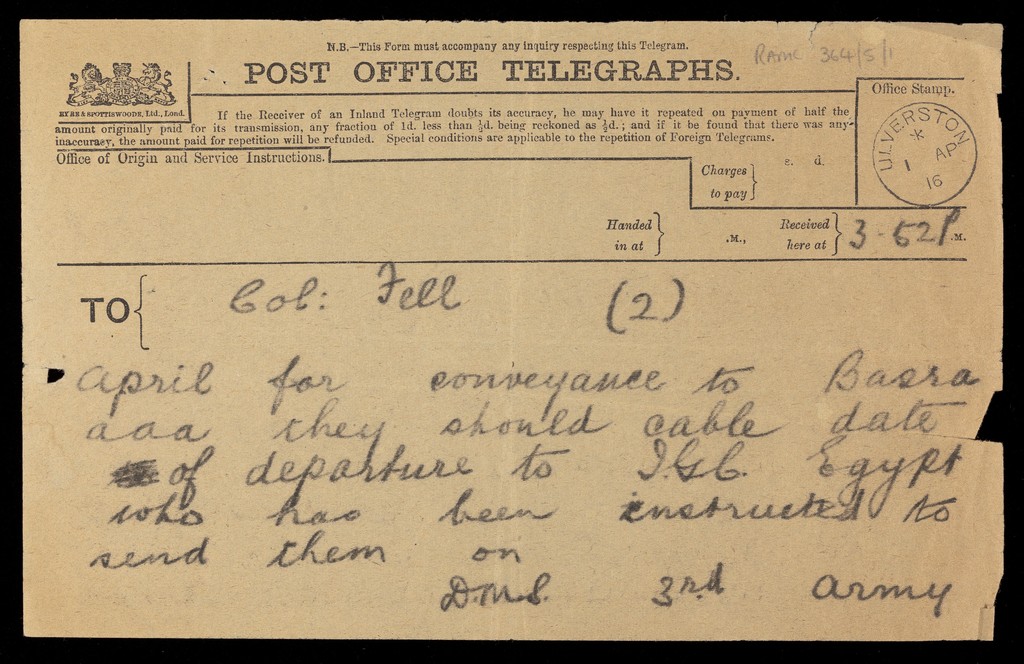 N.B.—This Form must accompany any inquiry respecting this Telegram.
RAMC 364/5/1
POST OFFICE TELEGRAPHS.
EYRE & SPOTTISWOODE, Ltd., Lond.
If the Receiver of an Inland Telegram doubts its accuracy, he may have it repeated on payment of half the
amount originally paid for its transmission, any fraction of 1d. less than ½d. being reckoned as ½d.; and if it be found that there was any
inaccuracy, the amount paid for repetition will be refunded. Special conditions are applicable to the repetition of Foreign Telegrams.
Office Stamp.
ULVERSTON
*
1 AP
16
Office of Origin and Service Instructions.
s. d.
Charges
to pay
Handed
in at
.M.,
Received
here at
3-52P.M.
TO
Col: Fell (2)
April for conveyance to Basra
aaa they should cable date
of departure to I.G.C. Egypt
who has been instructed to
send them on
D.M.S. 3rd Army